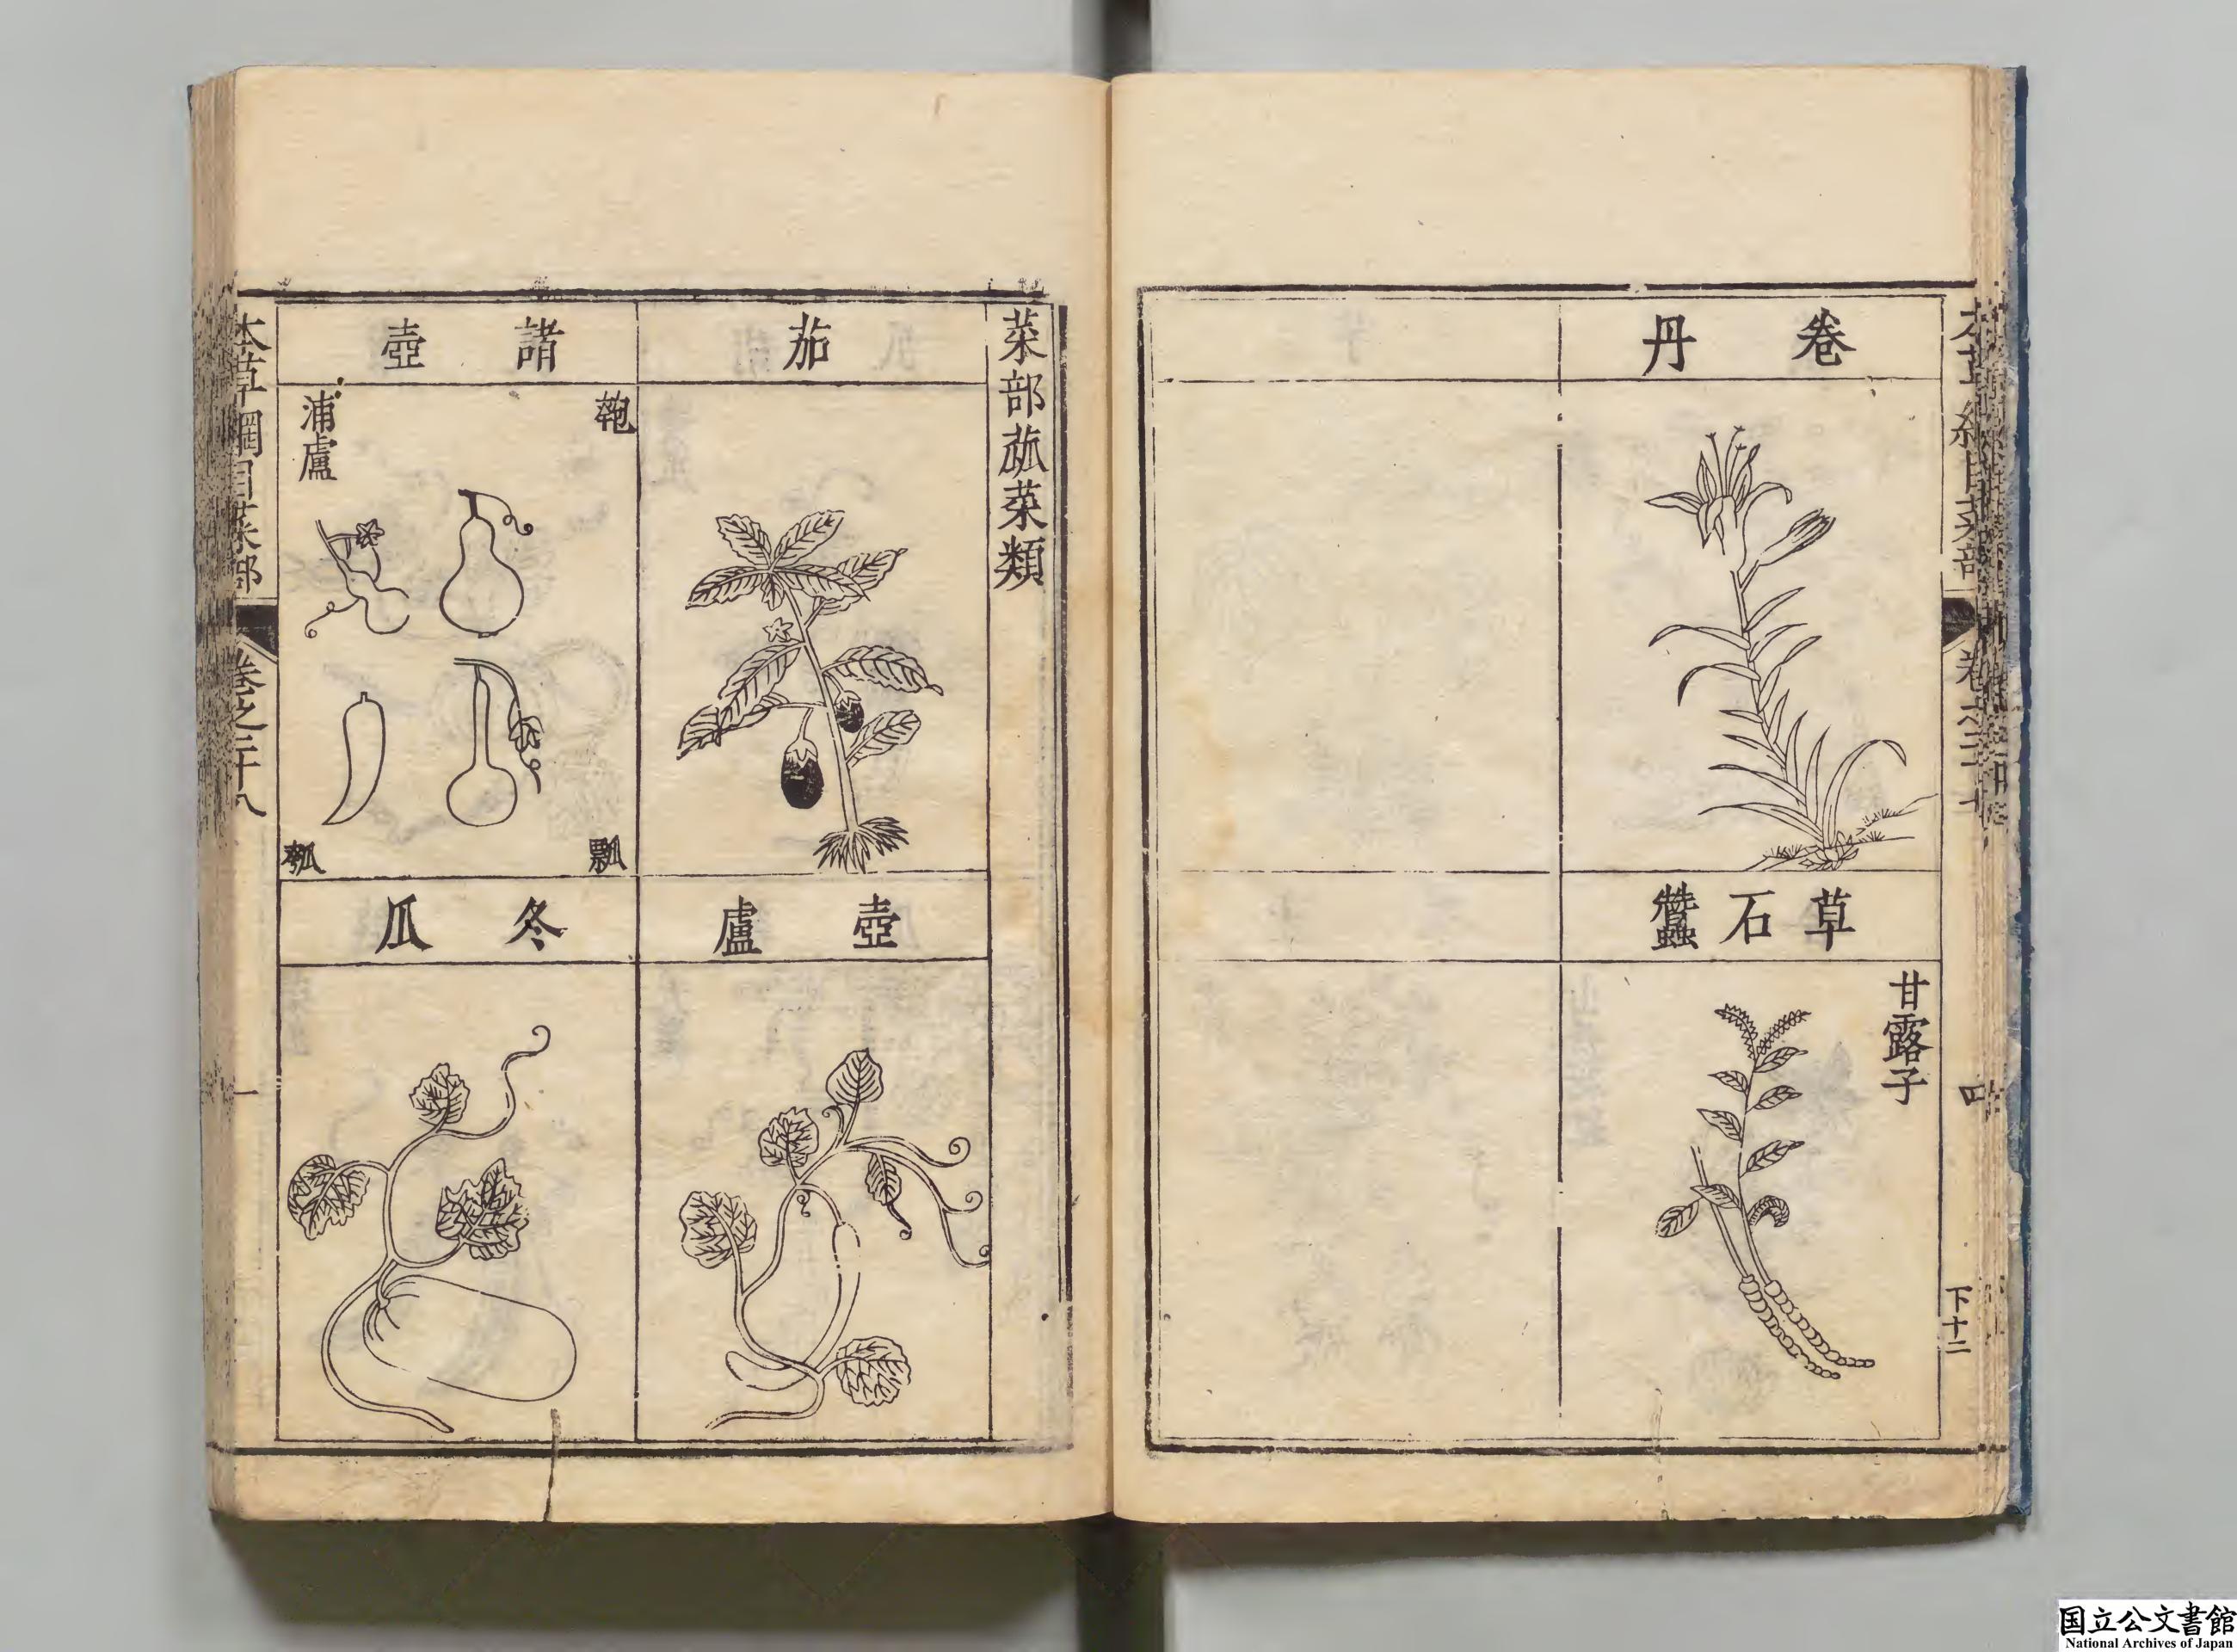 卷丹
草石蠶
甘露子
下十二
菜部蓏菜類
茄
諸壺
匏
蒲盧
瓢
瓠
壺盧
冬瓜
本草綱目菜部
卷之二十八
一
国立公文書館
National Archives of Japan